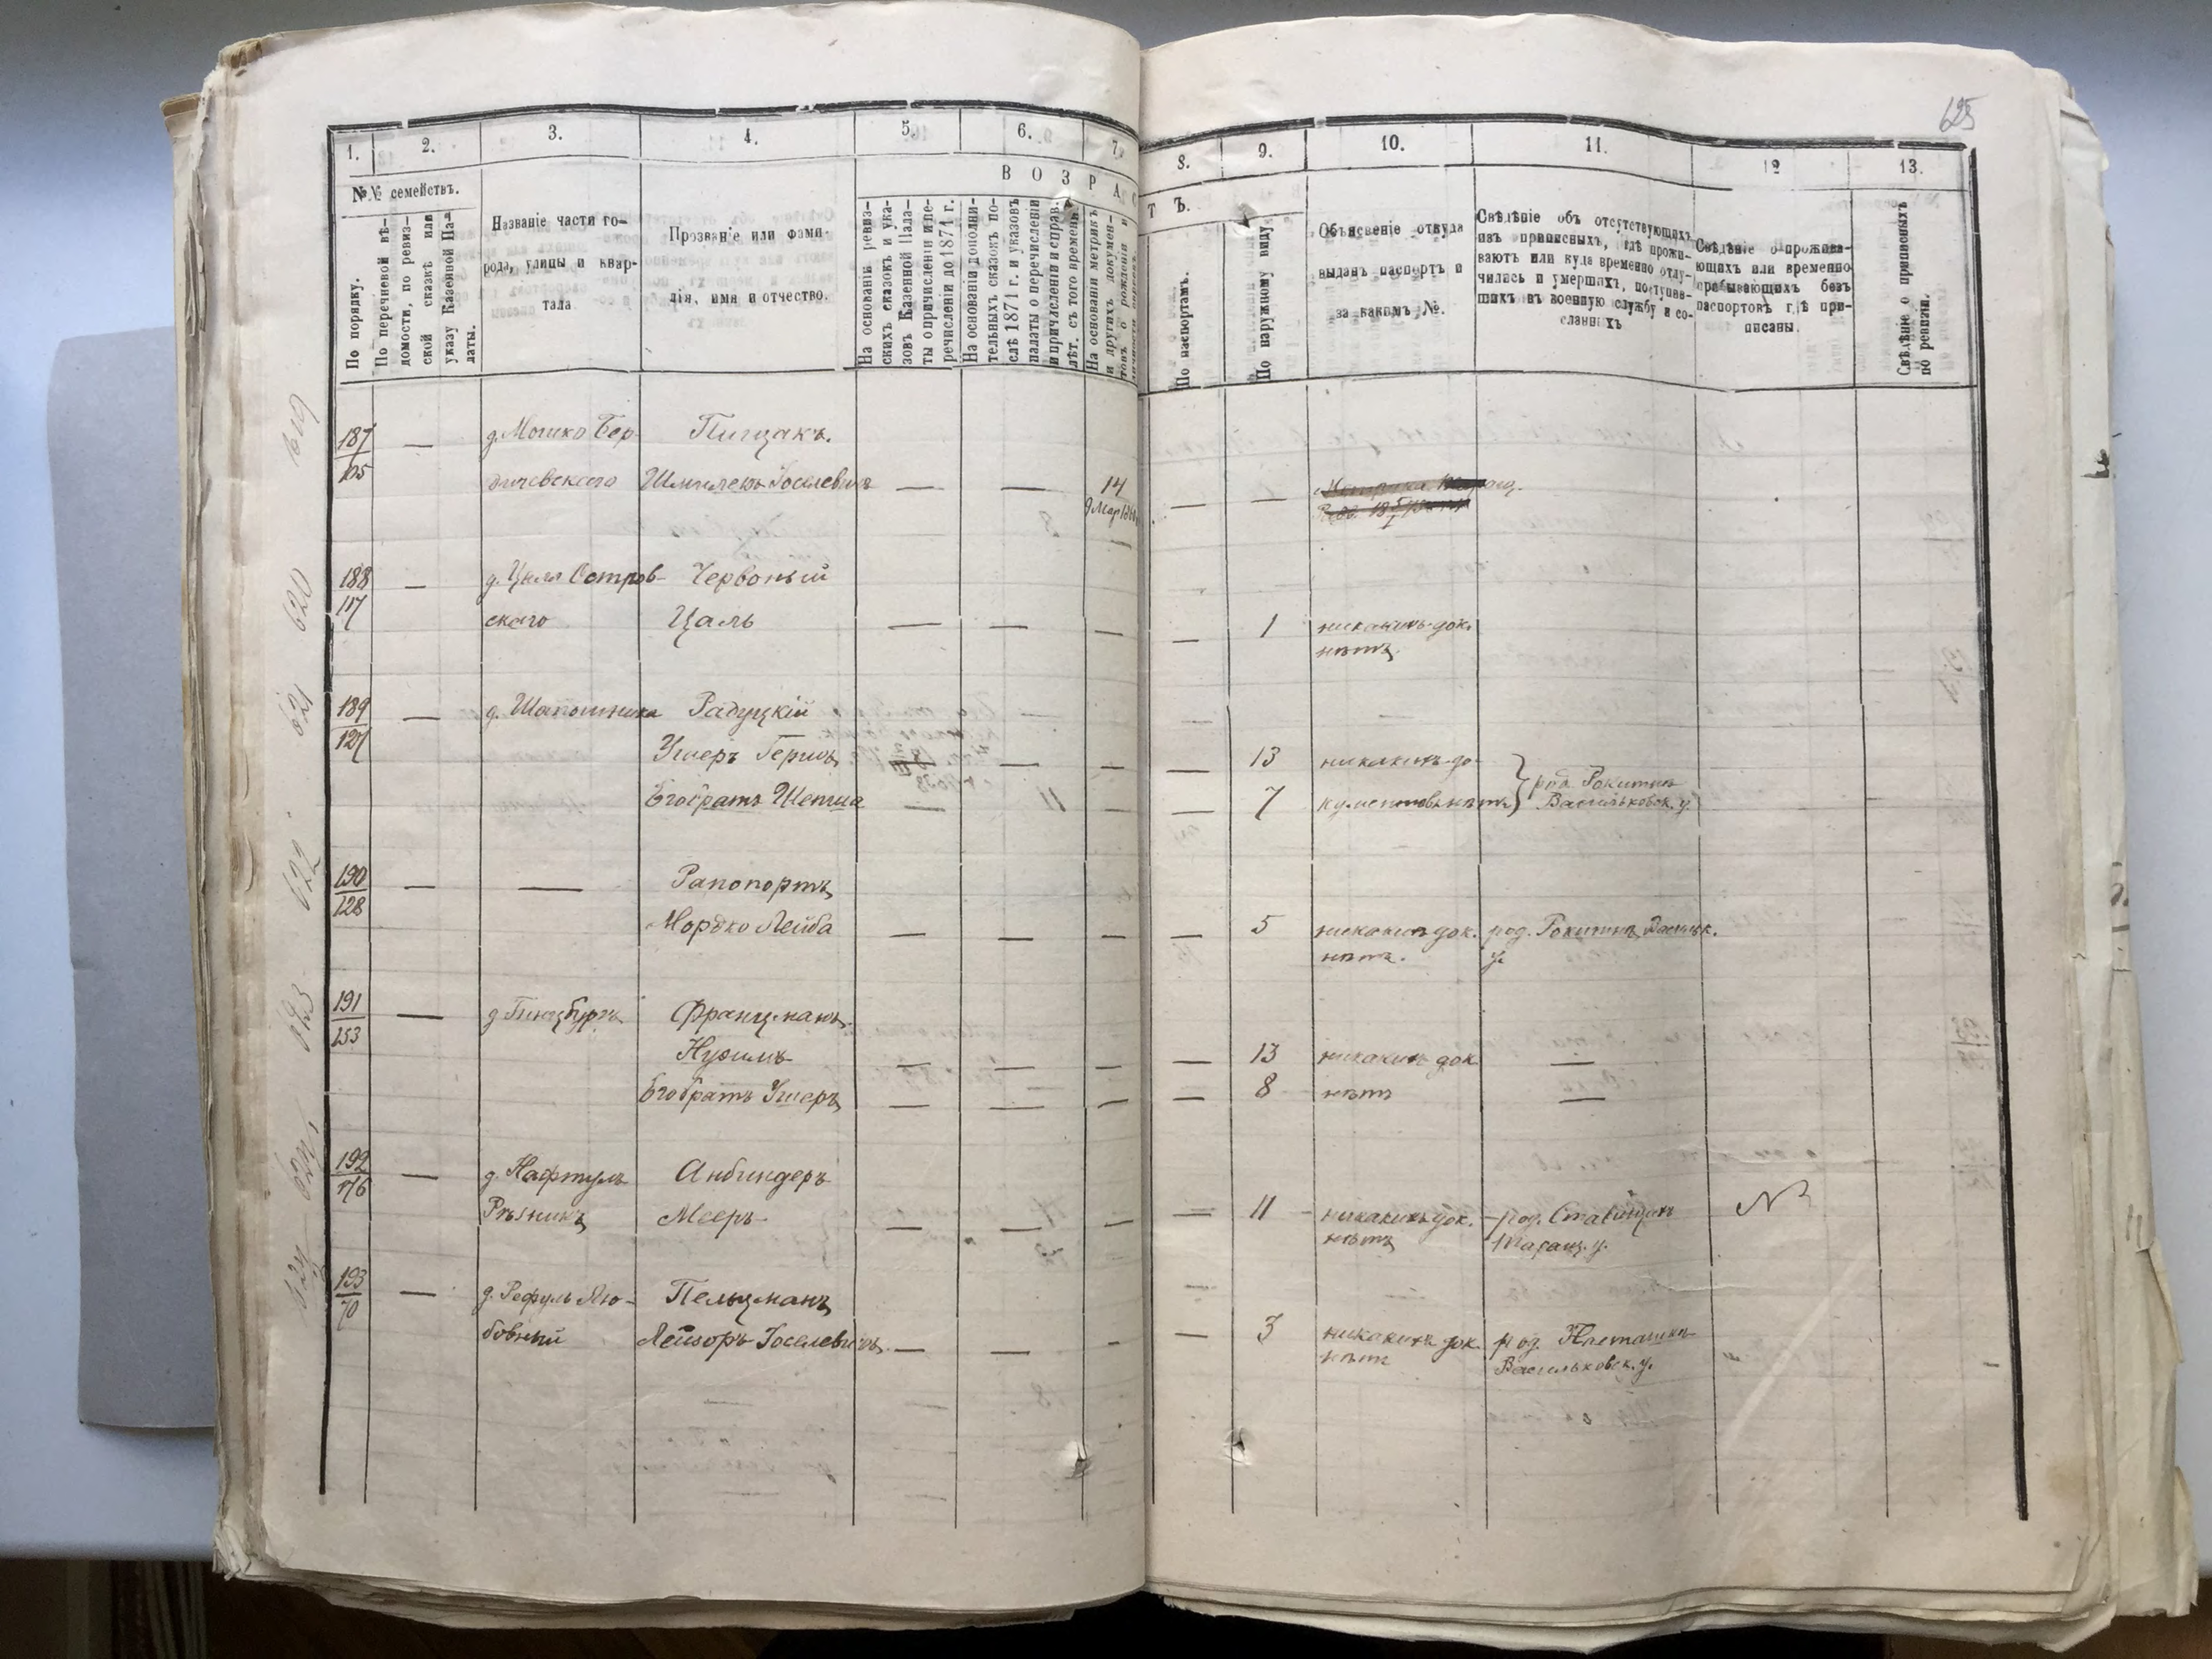 625
1. 2. 3. 4. 5. 6. 7. 8. 9. 10. 11. 12 13.
№№ семействъ.
По порядку.
По перечневой вѣ-
домости, по ревиз-
ской сказкѣ или
указу Казенной Па-
латы.
Названіе части го-
рода, улицы и квар-
тала
Прозваніе или фами-
лія, имя и отчество.
ВОЗРАСТЪ.
На основаніи ревиз-
скихъ сказокъ и ука-
зовъ Казенной Пала-
ты о причисленіи и пе-
речисленіи до 1871 г.
На основаніи дополни-
тельныхъ сказокъ по-
слѣ 1871 г. и указовъ
палаты о перечисленіи
и причисленіи и справ.
лѣт. съ того времени.
На основаніи метрикъ
и другихъ докумен-
товъ о рожденіи и
По паспортамъ.
По наружному виду.
Объясненіе откуда
выданъ паспортъ и
за какимъ №.
Свѣдѣніе объ отсутствующихъ
изъ приписныхъ, гдѣ прожи-
ваютъ или куда временно отлу-
чились и умершихъ, поступив-
шихъ въ военную службу и со-
сланныхъ
Свѣдѣніе о прожива-
ющихъ или временно
пребывающихъ безъ
паспортовъ гдѣ при-
писаны.
Свѣдѣніе о приписныхъ
по ревизіи.
619
187 — д. Мошко Бер- Пищакъ.
105 дичевского Шмилекъ Іоселевичъ — — 14 — —
9 Мар
620
188 — д. Цыля Остров- Червоный
117 ского Цаль — — — — 1 никакихъ док.
нѣтъ
621
189 — д. Шапошника Радуцкій
127 Ушеръ Гершъ — — 13 никакихъ до-
Его братъ Шепша — — — 7 кументовъ нѣтъ } род. Рокитнѣ
Васильковск. у.
622
190 — — Рапопортъ
128 Мордко Лейба — — — — 5 никакихъ док. род. Рокитнѣ Васильк.
нѣтъ. у.
623
191 — д. Гинцбургъ Французманъ
153 Нухимъ — — — — 13 никакихъ док —
Его братъ Ушеръ — — — — 8 нѣтъ —
624
192 — д. Нафтулъ Анбиндеръ
176 Рѣзникъ Мееръ — — — — 11 никакихъ док. род. Ставищах
нѣтъ Таращ. у.
193 — д. Рефулъ Лю- Пельцманъ
70 бовный Лейзоръ Іоселевичъ — — — — 3 никакихъ док. род. Насташкѣ
нѣтъ Васильковск. у.